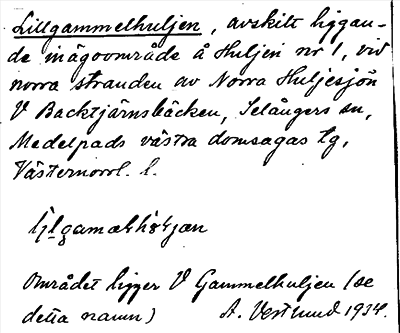 Lillgammelhuljen, avskilt liggan-
de inägoområde å Huljen nr 1, vid
norra stranden av Norra Huljesjön
V Backtjärnsbäcken, Selångers sn,
Medelpads västra domsagas tg,
Västernorrl. l.
Området ligger V Gammelhuljen (se
detta namn) A. Vestlund 1934.